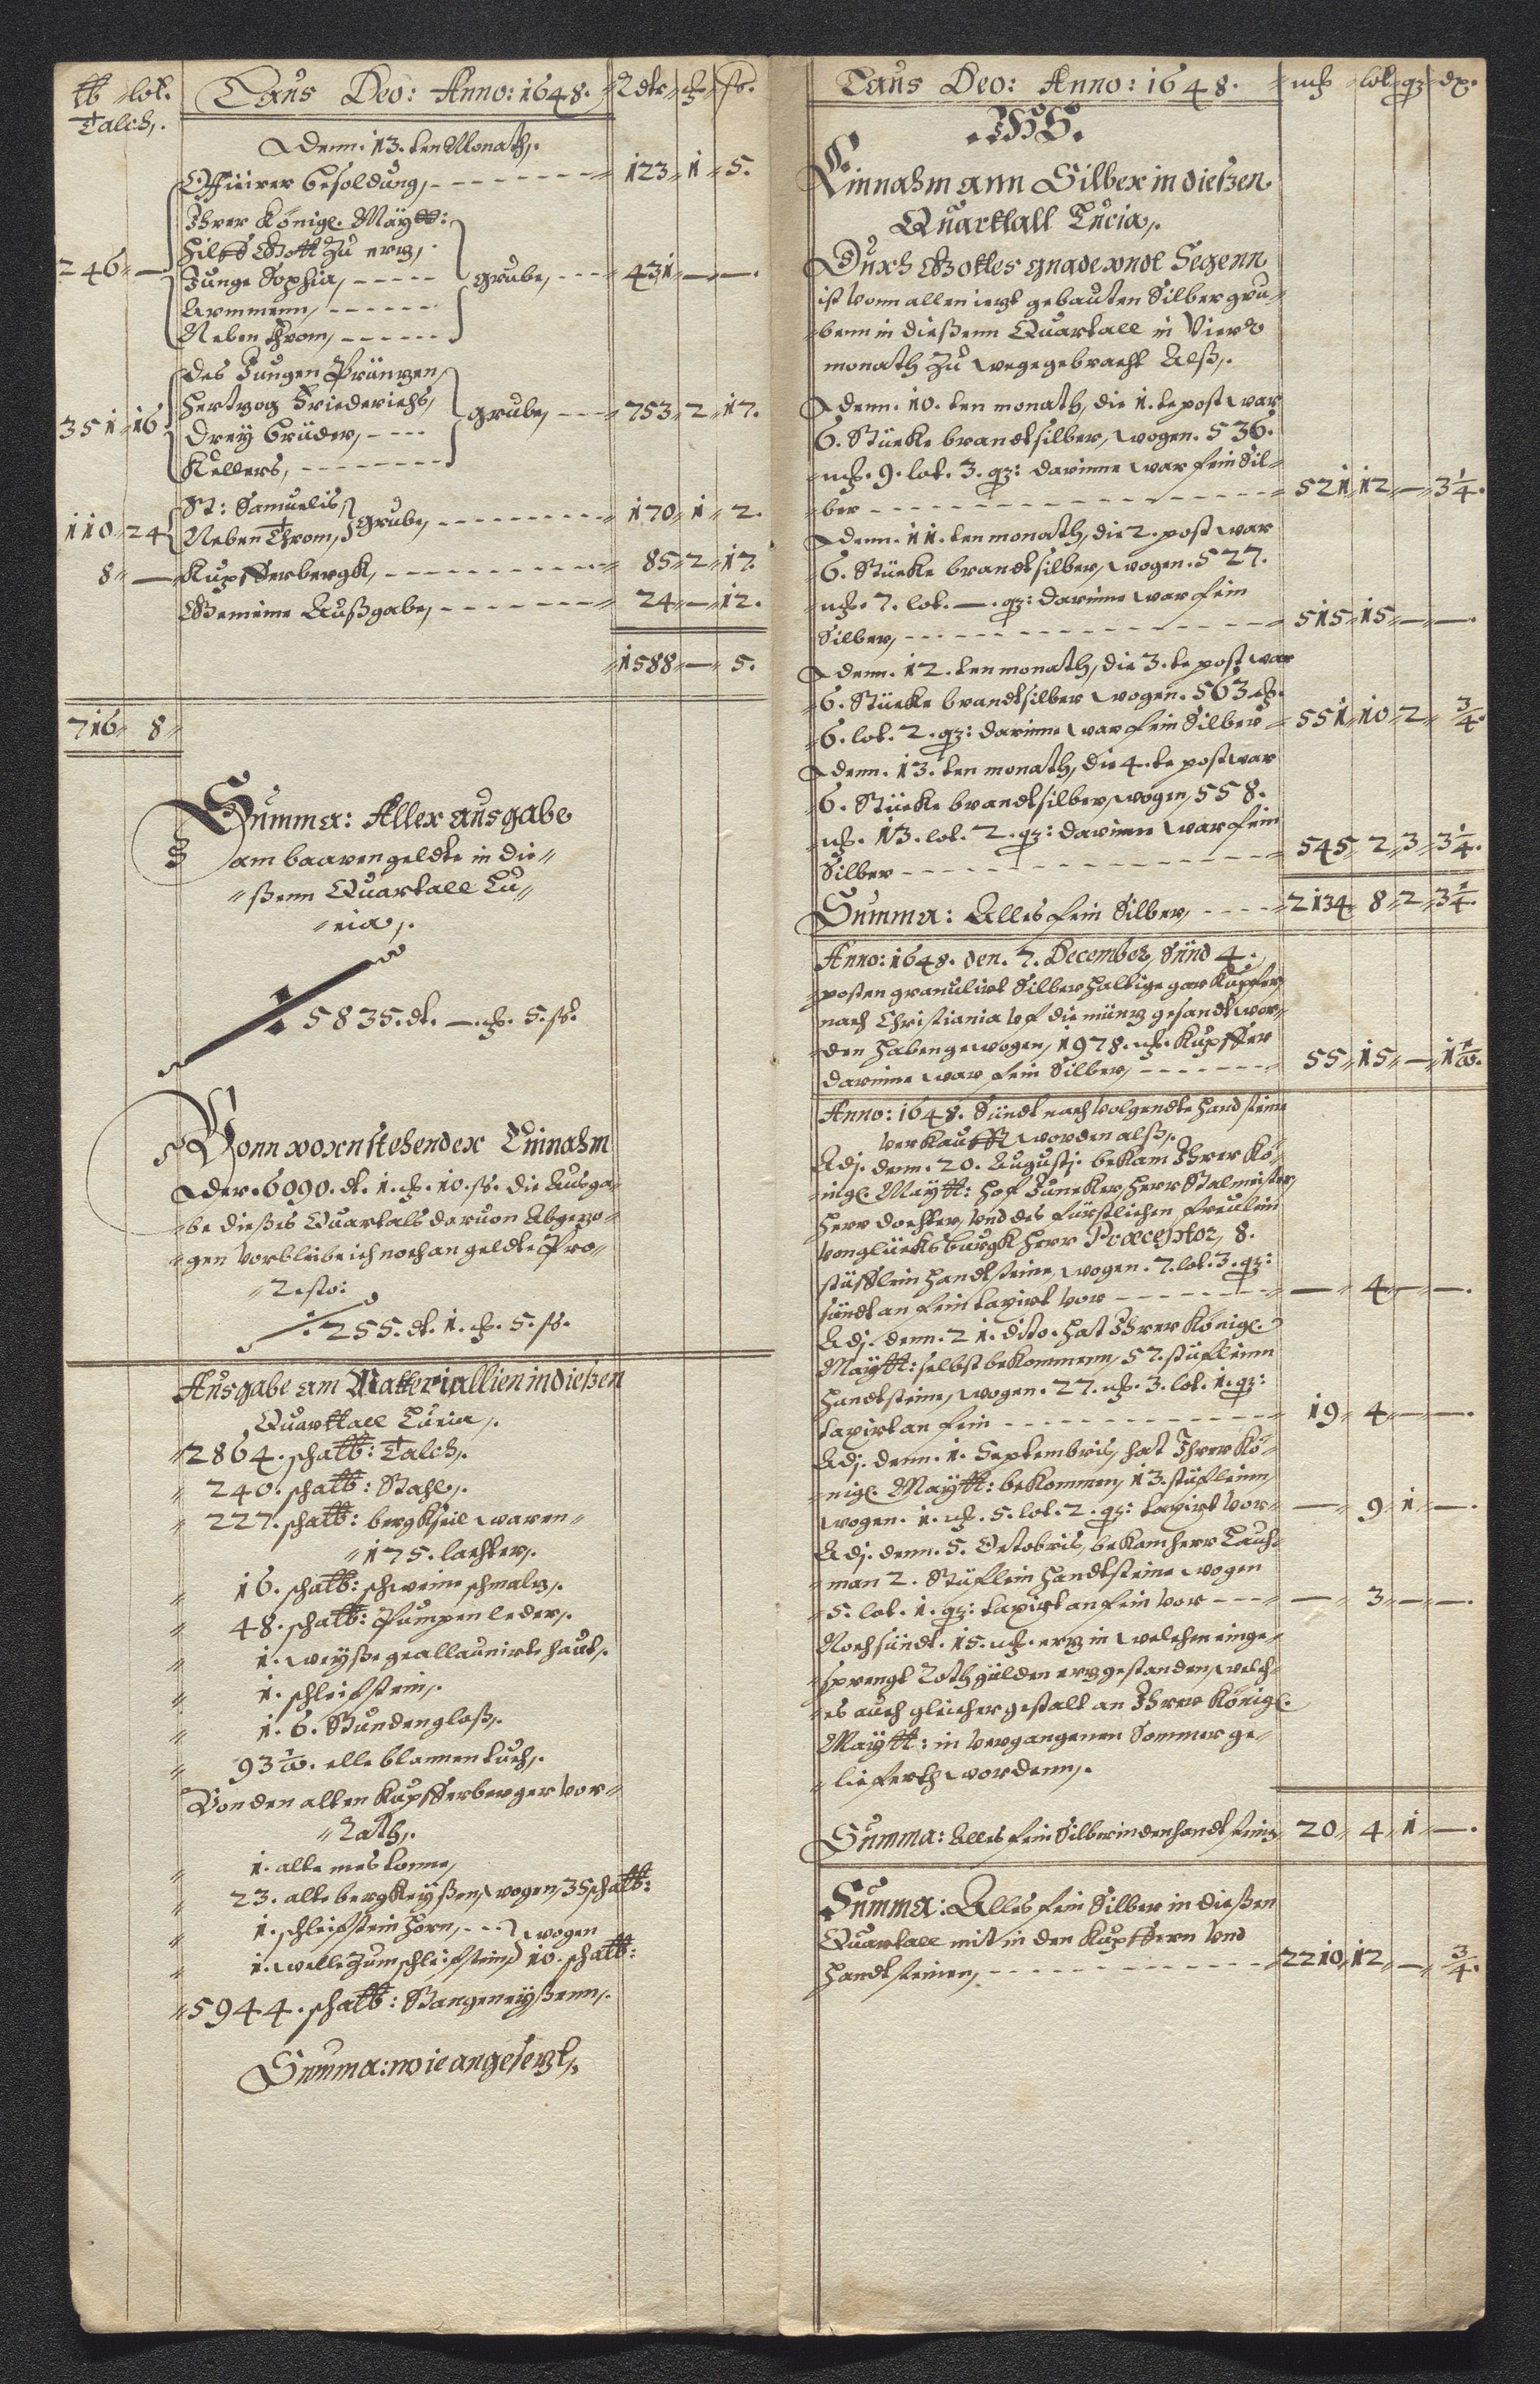 ℔ lot. Laus Deo: Anno: 1648. Rdlr ⸗ ß.
Talch,.
Denn. 13. ten Monath,.
Officirer besoldung, 123 1 5.
Ihrer Königl. Maÿtt:
hilff Gott zu ertz,
246 — Junge Sophia, grube, 431 — —.
Armmenn,
Neben throm,
des Jungen Printzen,
Hertzog Friederichs,
351 16 Dreÿ brüder, grube, 753 2 17.
Kellers,
St: Samuelis,
110 24 Neben Throm, grube, 170 1 2.
8 — Kupfferbergk, 85 2 17.
Gemeine Außgabe, 24 — 12.
1588 — 5.
716 8
Summa: Aller ausgabe
am baaren geldte in die⸗
ßenn Quartall Lu⸗
cia,.
5835. dl. — . 5. ß.
Vonn vornstehender Einnahm
der. 6090. dl. 1. . 10. ß. die Ausga⸗
be dießes Quartals daruon Abgezo⸗
gen Vorbleibe ich noch an geldte Pro⸗
Resto:
255. dl. 1. . 5. ß.
Ausgabe am Matteriallien in dießen
Quarttall Lucia,.
2864. schal℔: Talch,.
240. schal℔: Stahl,.
227. schal℔: bergkseil waren
175. lachter,.
16. schal℔: schweine schmaltz,.
48. schal℔: Pumpen leder,.
1. weÿße geallaunirte haut,.
1. schleifstein,.
1. 6. Stunden glaß,.
93½. elle blannen tuch,.
Von den alten Kupfferberger Vor⸗
Rath,.
1. alte mes tonne,
23. alte bergkeÿßen, wogen, 35 schal℔:
1. schleifstein horn, wogen
1. welle zum schleifstein, 10. schal℔:
5944. schal℔: Stangeneÿßenn,.
Summa: wie angesetzt,.
Laus Deo: Anno: 1648. mk lot qz dx.
Einnahm ann Silber in dießen
Quarttall Lucia,.
Durch Gottes gnade vnde Segenn
ist vonn allen ietzt gebauten Silber gru⸗
benn in dießenn Quartall in Vierd
monath zu wege gebracht Alß,.
Denn. 10. ten monath, die 1. te post war
6. Stücke brandtsilber, wogen. 536.
mk. 9. lot. 3. qz: darinne war fein Sil⸗
ber 521 12 — 3¼.
Denn. 11. ten monath, die 2. post war
6. Stücke brandtsilber, wogen. 527.
mk. 7. lot. —. qz: darinne war fein
Silber, 515 15 — —.
Denn. 12. ten monath, die 3. te post war
6. Stücke brandtsilber wogen. 563 mk.
6. lot. 2. qz: darinne war fein Silber 551 10 2 ¾.
Denn. 13. ten monath, die 4. te post war
6. Stücke brandtsilber, wogen, 558.
mk. 13. lot. 2. qz: darinne war fein
Silber 545 2 3 3¼.
Summa: Alles fein Silber, 2134 8 2 3¼.
Anno: 1648. den. 7. December, Sünd 4.
posten granulirt Silberhaltige gar Kupffer,
nach Christiania vf die müntz gesandt wor⸗
den haben gewogen, 1978. mk. Kupffer
darinne war fein Silber, 55 15 — 1½.
Anno: 1648. Sündt nach volgendte Handsteine
verkaufft worden alß,.
Adj. denn. 20. Augustj. bekam Ihrer Kö⸗
nigl. Maÿtt: Hof Juncker, Herr Stalmeister,
Herr Docktor, vnd des fürstlichen freulein
von glücksburgk Herr Præceptor, 8.
stüfflein Handtsteine, wogen. 7. lot. 3. qz:
sündt an fein taxirt vor — 4 — —.
Adj. denn. 21. dito. Hat Ihrer Königl.
Maÿtt: selbst bekommenn, 57. stüfleinn
Handtsteine, wogen. 27. mk. 3. lot. 1. qz:
taxirt an fein 19 4 — —.
Adj. denn. 1. Septembris, hat Ihrer Kö⸗
nigl. Maÿtt: bekommen, 13. stüfleinn,
wogen. 1. mk. 5. lot. 2. qz: taxirt vor — 9 1 —.
Adj. denn. 5. Octobris, bekam Herr Lauch⸗
man 2. Stüflein Handtsteine wogen
5. lot. 1. qz: taxirt an fein vor — 3 — —.
Noch sündt. 15. mk. ertz in welchen einge⸗
sprengt Rothgülden ertz gestanden, welch⸗
es auch gleicher gestalt an Ihrer Königl.
Maÿtt: in vergangenen Sommer ge⸗
lieferth wordenn,.
Summa: Alles fein Silber in den handtsteine, 20 4 1 —.
Summa: Alles fein Silber in dießen
Quartall mit in den Kupffern vnd
Handtsteinen, 2210 12 — ¾.